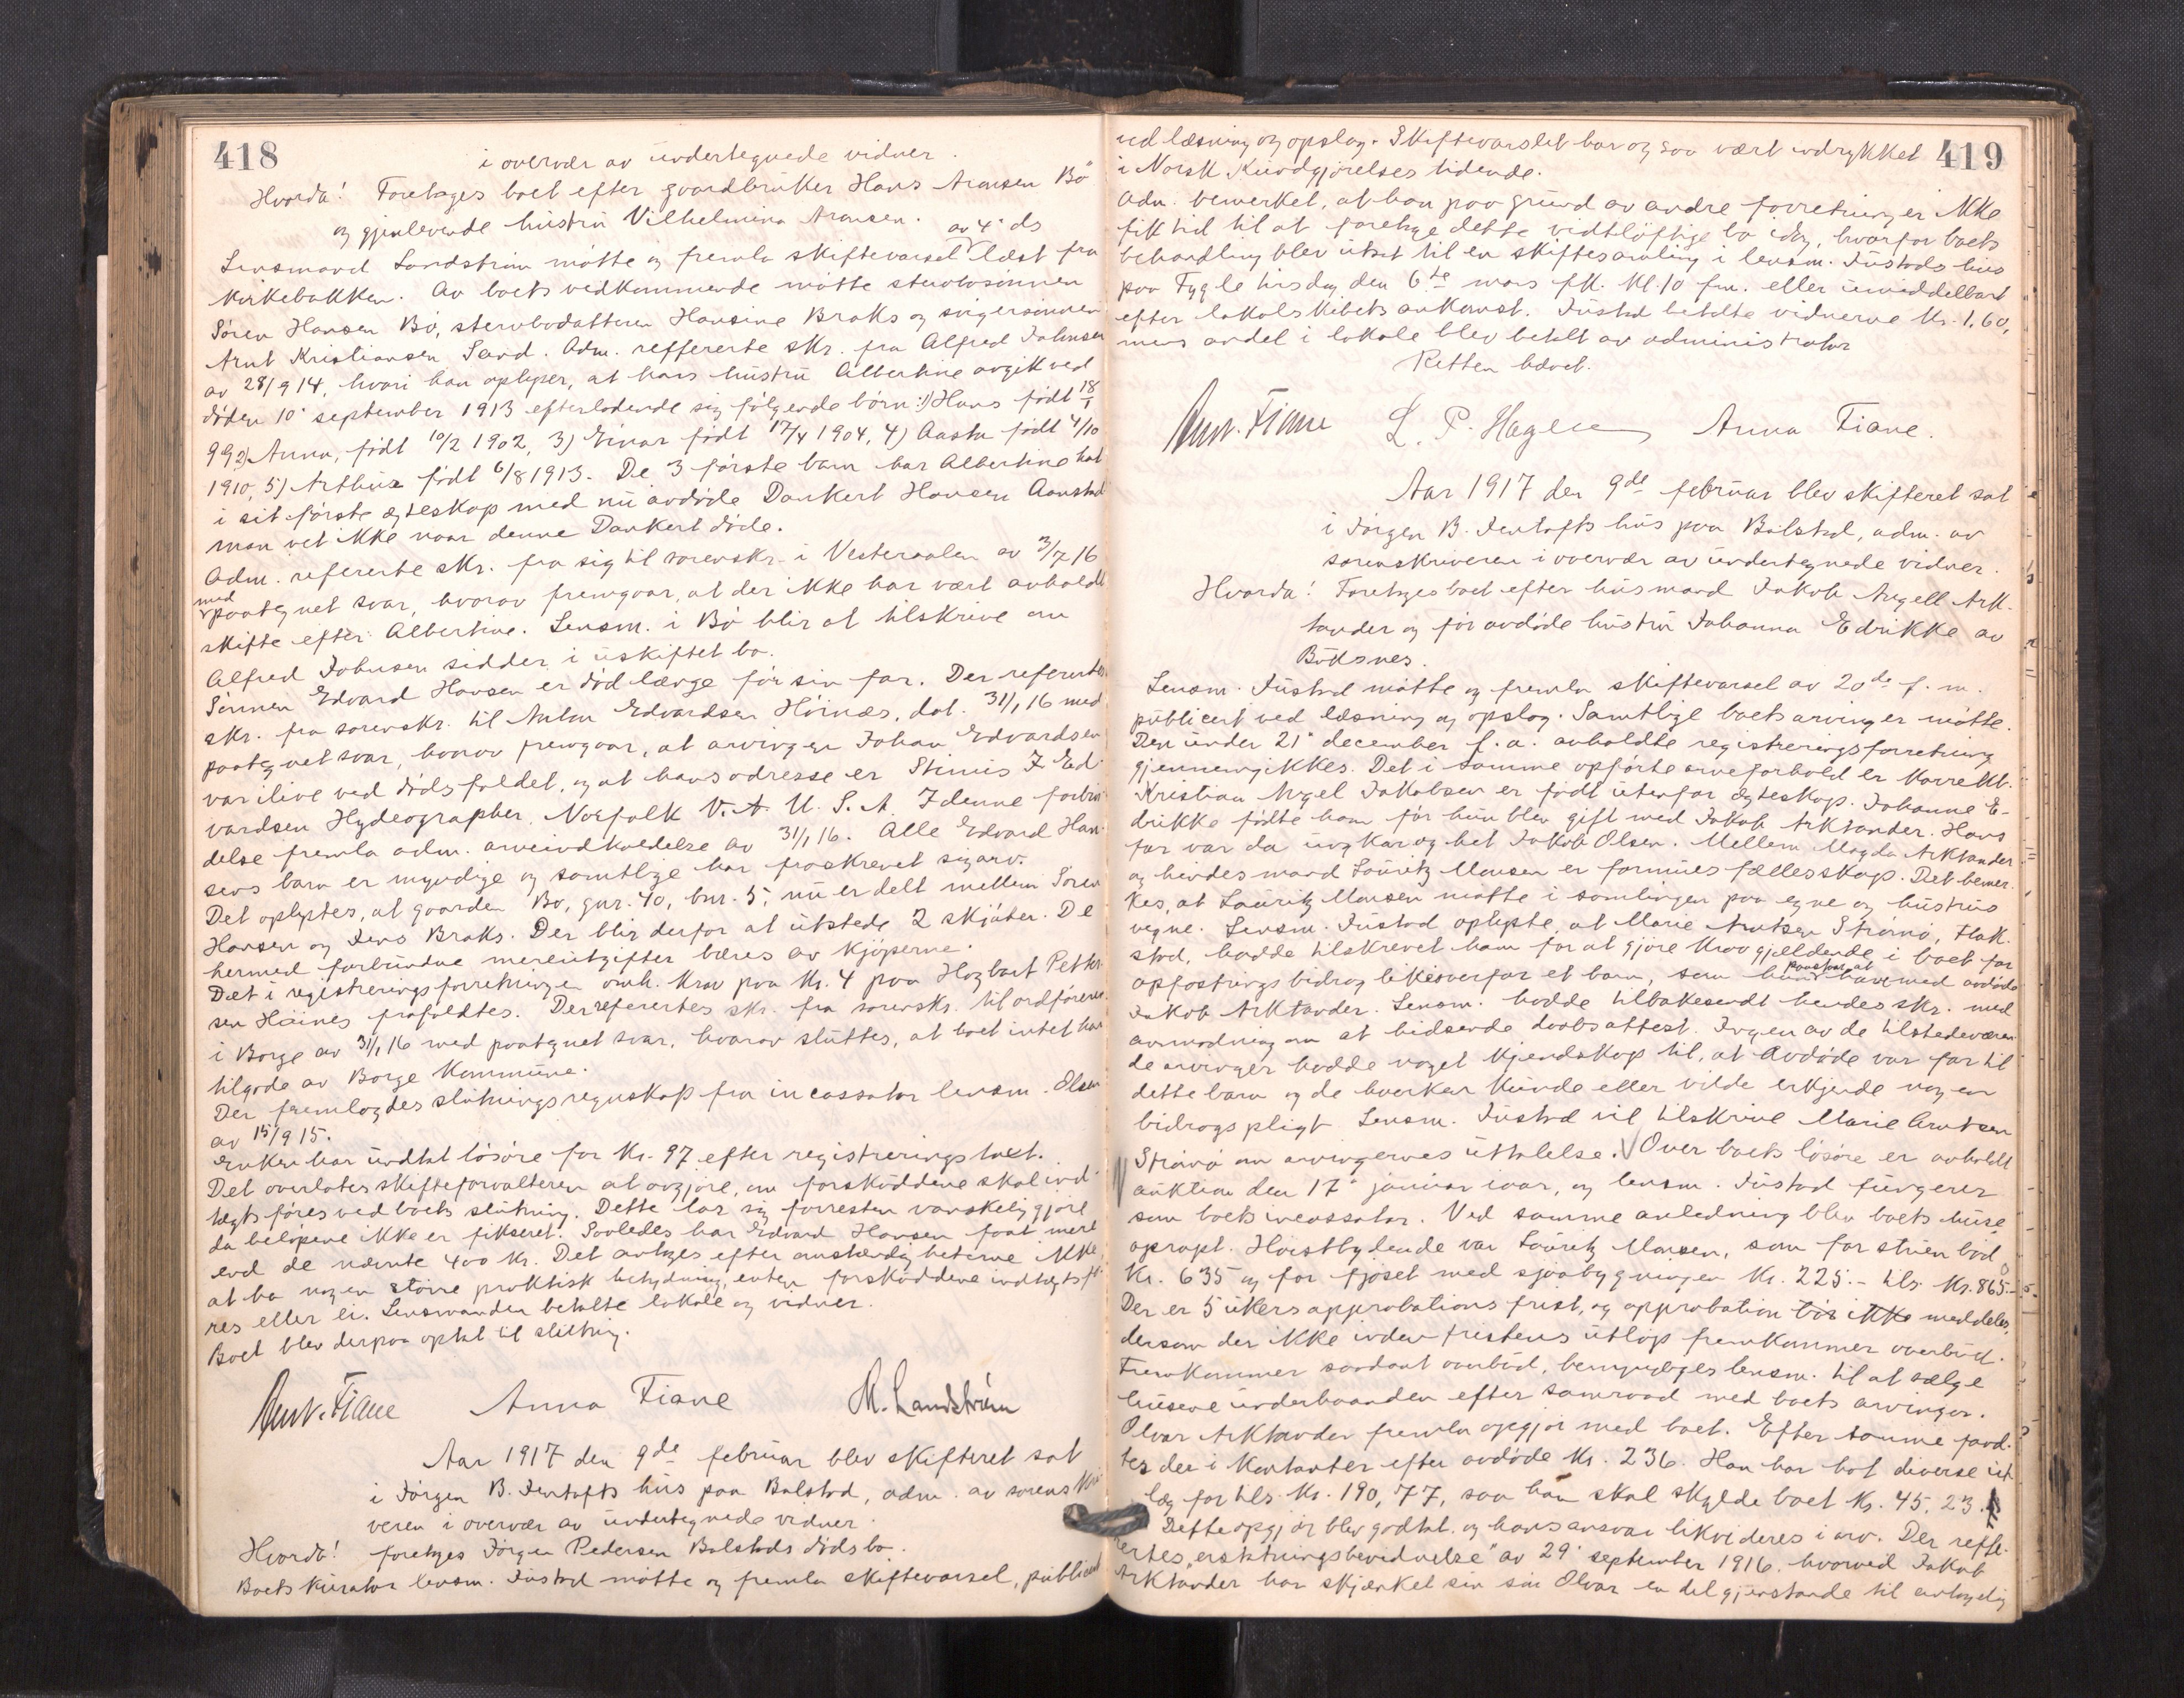 418
i overvær av undertegnede vidner.
Hvorda! Foretages boet efter gaardbruker Hans Aronsen Bø
og gjenlevende hustru Vilhelmina Aronsen.
av 4' ds
Lensmand Landstrøm møtte og fremla skiftevarsel læst fra
kirkebakken. Av boets vedkommende møtte stervbosønnen
Søren Hansen Bø, stervbodatteren Hansine Braks og svigersønnen
Arnt Kristiansen Sand. Adm. reffererte skr. fra Alfred Johnsen
av 28/9 14, hvori han oplyser, at hans hustru Albertine avgik ved
døden 10' september 1913 efterladende sig følgende børn: 1) Hans født 18/1
99 2) Anna, født 10/2 1902, 3) Einar født 17/4 1904, 4) Aasta født 4/10
1910, 5) Arthur født 6/8 1913. De 3 første barn har Albertine hat
i sit første egteskap med nu avdøde Dankert Hansen Aanstad
man vet ikke naar denne Dankert døde.
Adm. refererte skr. fra sig til sorenskr. i Vesteraalen av 3/7 16
med
paategnet svar, hvorav fremgaar, at der ikke har vært avholdt
skifte efter Albertine. Lensm. i Bø blir at tilskrive om
Alfred Johnsen sidder i uskiftet bo.
Sønnen Edvard Hansen er død længe før sin far. Der refertes
skr. fra sorenskr. til Anton Edvardsen Høinæs, dat. 31/1 16 med
paategnet svar, hvorav fremgaar, at arvingen Johan Edvardsen
var ilive ved dødsfaldet, og at hans adresse er Stimis J. Ed-
vardsen Hydeographer, Norfolk V. A. U. S. A. I denne forbin
delse fremla adm. arveindkaldelse av 31/1 16. Alle Edvard Han-
sens barn er myndige og samtlige har fraskrevet sig arv.
Det oplystes, at gaarden Bø, gnr. 40, bnr. 5, nu er delt mellem Søren
Hansen og Jens Braks. Der blir derfor at utstede 2 skjøter. De
hermed forbundne merutgifter bæres av kjøperne.
Det i registreringsforretningen omh. krav paa Kr. 4 paa Hagbart Petter
sen Høines frafaldtes. Der refertes skr. fra sorenskr. til ordføreren
i Borge av 31/1 16 med paategnet svar, hvorav sluttes, at boet intet har
tilgode av Borge kommune.
Der fremlagdes slutningsregnskap fra incassator lensm. Olsen
av 15/9 15.
Enken har undtat løsøre for Kr. 97 efter registreringstakst.
Det overlates skifteforvalteren at avgjøre, om forskuddene skal ind-
tægtsføres ved boets slutning. Dette lar sig forresten vanskelig gjøre
da beløpene ikke er fikseret. Saaledes har Edvard Hansen faat mere
end de nævnte 400 kr. Det antages efter omstændigheterne ikke
at ha nogen større praktisk betydning, enten forskuddene indtægtsfø
res eller ei. Lensmanden betalte lokale og vidner.
Boet blev derpaa optat til slutning.
Anna Fiane
M. Landstrøm
Aar 1917 den 9de februar blev skifteret sat
i Jørgen B. Jentofts hus paa Balstad, adm. av sorenskri
veren i overvær av undertegnede vidner.
Hvorda! foretages Jørgen Pedersen Balstads dødsbo.
Boets kurator lensm. Justad møtte og fremla skiftevarsel, publicert
419
ved læsning og opslag. Skiftevarslet har ogsaa vært indrykket
i Norsk Kundgjørelses tidende.
Adm. bemerket, at han paa grund av andre forretninger ikke
fik tid til at foretage dette vidtløftige bo idag, hvorfor boets
behandling blev utsat til en skiftesamling i lensm. Justads hus
paa Fygle tirsdag den 6te mars fk. kl. 10 fm. eller umiddelbart
efter lokalskibets ankomst. Justad betalte vidnerne Kr. 1,60,
mens andel i lokale blev betalt av administrator
Retten hævet.
L. P. Hagen
Anna Fiane.
Aar 1917 den 9de februar blev skifteret sat
i Jørgen B. Jentofts hus paa Balstad, adm. av
sorenskriveren i overvær av undertegnede vidner.
Hvorda! Foretages boet efter husmand Jakob Angell Ark-
tander og før avdøde hustru Johanna Edrikke av
Bøksnes.
Lensm. Justad møtte og fremla skiftevarsel av 20de f. m.
publicert ved læsning og opslag. Samtlige boets arvinger møtte.
Den under 21' december f. a. avholdte registreringsforretning
gjennemgikkes. Det i samme opførte arveforhold er korrekt.
Kristian Angel Jakobsen er født utenfor egteskap. Johanne E-
drikke fødte ham før hun blev gift med Jakob Arktander. Hans
far var da ungkar og het Jakob Olsen. Mellem Magda Arktander
og hendes mand Lauritz Monsen er formues fællesskap. Det bemer-
kes, at Lauritz Monsen møtte i samlingen paa egne og hustrus
vegne. Lensm. Justad oplyste, at Marie Arntsen Strønø, Hak-
stad, hadde tilskrevet ham for at gjøre krav gjældende i boet for
paastaar at
opfostringsbidrag likeoverfor et barn, som hun have med avdøde
Jakob Arktander. Lensm. hadde tilbakesendt hendes skr. med
anmodning om at indsende daabsattest. Ingen av de tilstedeværen-
de arvinger hadde noget kjendskap til, at avdøde var far til
dette barn og de hverken kunde eller vilde erkjende nogen
bidragspligt. Lensm. Justad vil tilskrive Marie Arntsen
Strønø om arvingernes uttalelse. Over boets løsøre er avholdt
auktion den 17' januar iaar, og lensm. Justad fungerer
som boets incassator. Ved samme anledning blev boets huse
opropt. Høistbydende var Lauritz Monsen, som for stuen bød
Kr. 635 og for fjøset med sjaabygningen Kr. 225.- tils. Kr. 865.-
Der er 5 ukers approbations frist, og approbation bør ikke meddeles,
dersom der ikke inden fristens utløp fremkommer overbud.
Fremkommer saadant overbud, bemyndiges lensm. til at sælge
husene underhaanden efter samraad med boets arvinger.
Olvar Arktander fremla opgjør med boet. Efter samme fand-
tes der i kontanter efter avdøde Kr. 236. Han har hat diverse ut-
læg for tils. Kr. 190,77, saa han skal skylde boet Kr. 45,23.
Dette opgjør blev godtat. og hans ansvar likvideres i arv. Der reffe-
rertes „erstatningsbevidnelse" av 29' september 1916, hvorved Jakob
Arktander har skjænket sin søn Olvar en del gjenstande til antagelig